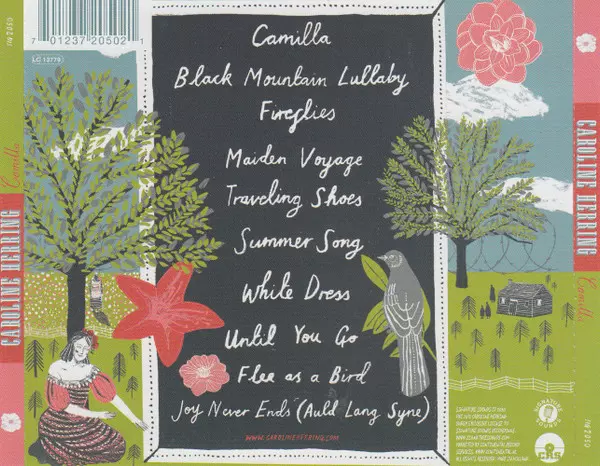 7 01237 20502 1
LC 12779
Camilla
Black Mountain Lullaby
Fireflies
Maiden Voyage
Traveling Shoes
Summer Song
White Dress
Until You Go
Flee as a Bird
Joy Never Ends (Auld Lang Syne)
WWW.CAROLINEHERRING.COM
CAROLINE HERRING
Camilla
CAROLINE HERRING
Camilla
SIGNATURE SOUNDS